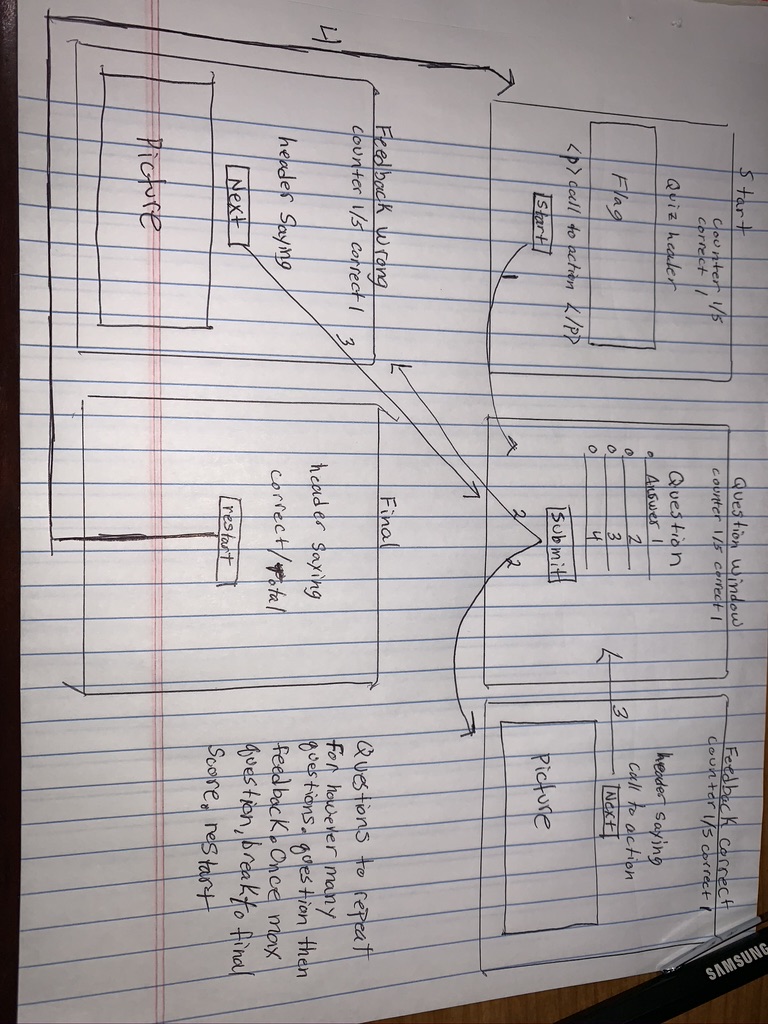 Start
counter 1/5
correct 1
Quiz header
Flag
<p> call to action </p>
Start
1
Question Window
counter 1/5 correct 1
Question
Answer 1
2
3
4
Submit
2
2
Feedback correct
counter 1/5 correct 1
header saying
call to action
Next
3
Picture
4
Feedback wrong
counter 1/5 correct 1
header saying
Next
3
Picture
Final
header saying
correct/total
restart
Questions to repeat
for however many
questions. question then
feedback. Once max
question, break to final
Score, restart
SAMSUNG